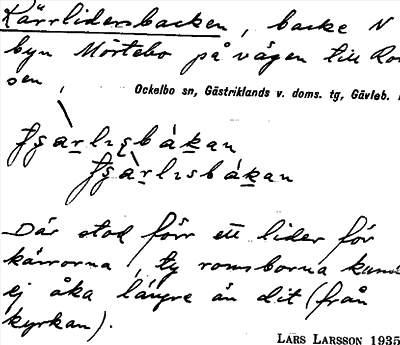 Kärrlidersbacken, backe N
byn Mörtebo på vägen till
sen,
Ockelbo sn, Gästriklands v. doms. tg, Gävleb.
Där stod förr ett lider för
kärrorna, ty romsborna kund
ej åka längre än dit (från
kyrkan).
LARS LARSSON 1935